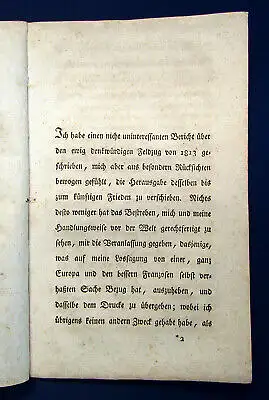 Ich habe einen nicht uninteressanten Bericht über
den ewig denkwürdigen Feldzug von 1813 ge-
schrieben, mich aber aus besondern Rücksichten
bewogen gefühlt, die Herausgabe desselben bis
zum künftigen Frieden zu verschieben. Nichts
desto weniger hat das Bestreben, mich und meine
Handlungsweise vor der Welt gerechtfertigt zu
sehen, mir die Veranlassung gegeben, dasjenige,
was auf meine Lossagung von einer, ganz
Europa und den bessern Franzosen selbst ver-
haßten Sache Bezug hat, auszuheben, und
dasselbe dem Drucke zu übergeben; wobei ich
übrigens keinen andern Zweck gehabt habe, als
*2